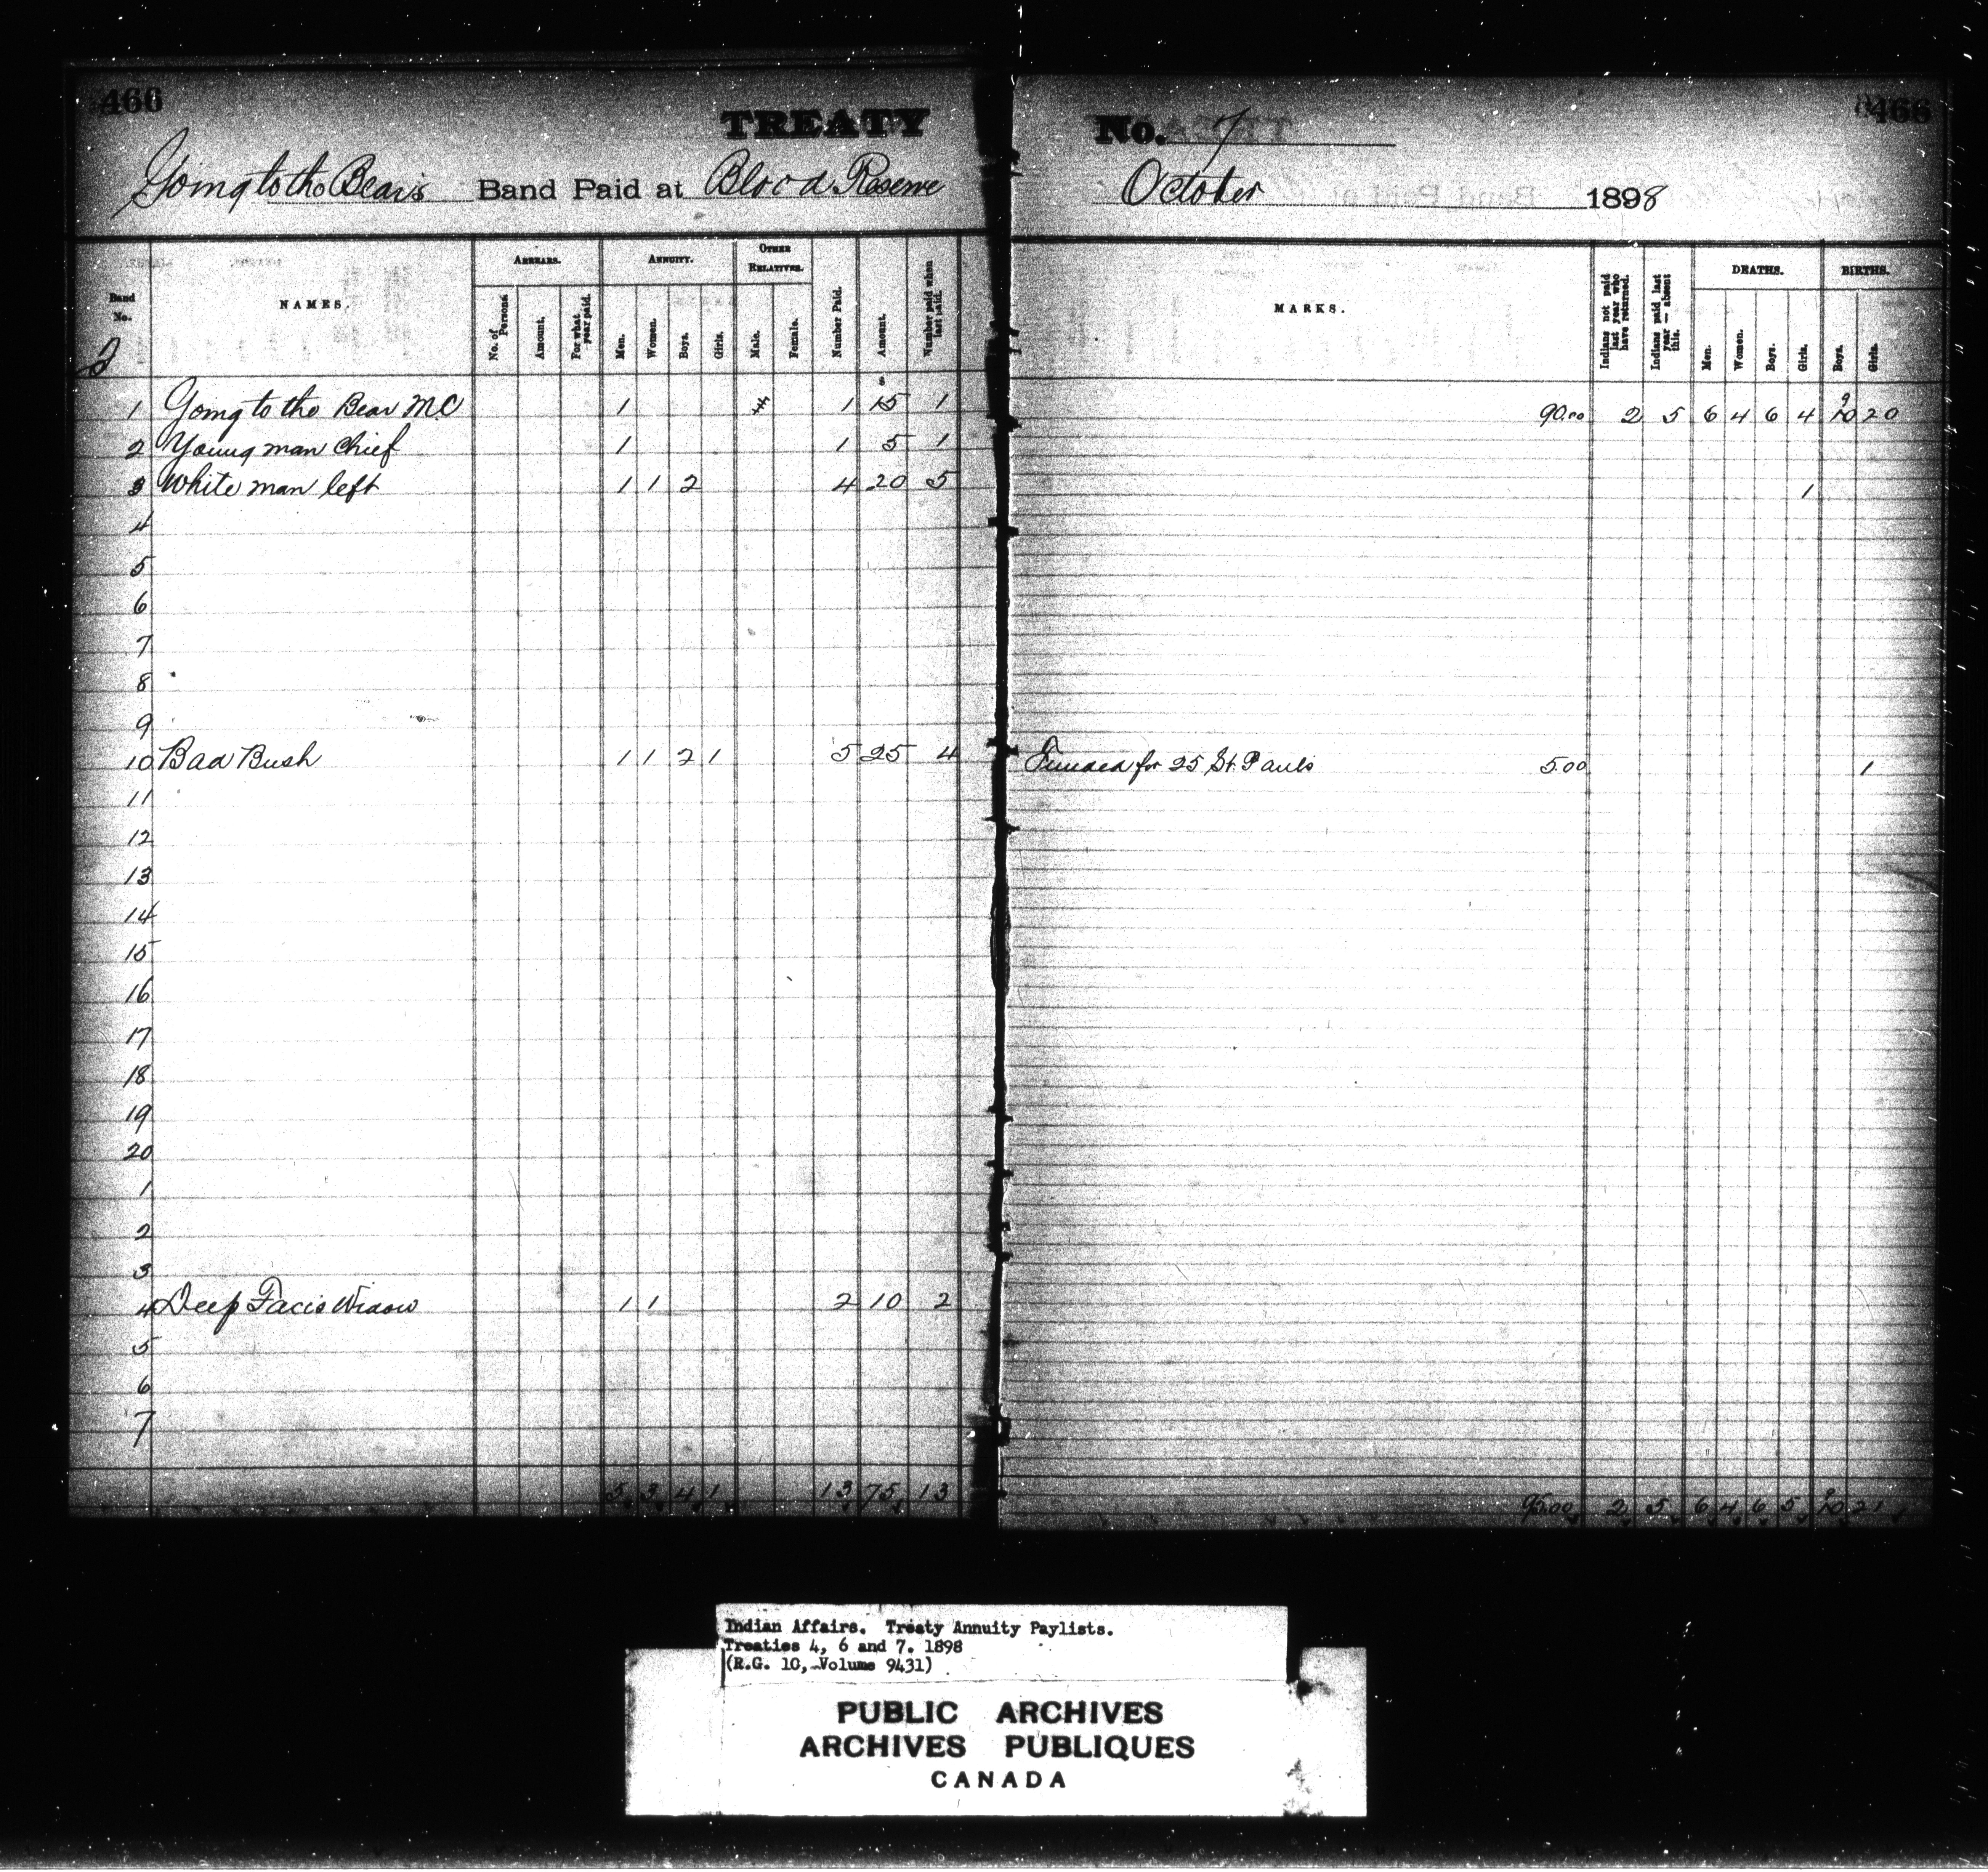 466
TREATY
Going to the Bear's Band Paid at Blood Reserve
Band No. NAMES. ARREARS. ANNUITY. OTHER RELATIVES.
No. of Persons Amount. For what year paid. Men. Women. Boys. Girls. Male. Female. Number Paid. Amount. Number paid when last paid.
2
$
1 Going to the Bear M.C 1 1 15 1
2 Young man Chief 1 1 5 1
3 White man left 1 1 2 4 20 5
4
5
6
7
8
9
10 Bad Bush 1 1 2 1 5 25 4
11
12
13
14
15
16
17
18
19
20
1
2
3
4 Deep Face's Widow 1 1 2 10 2
5
6
7
5 3 4 1 13 75 13
466
No. 7
October 1898
MARKS. DEATHS. BIRTHS.
Indians not paid last year who have returned. Indians paid last year — absent this. Men. Women. Boys. Girls. Boys. Girls.
9
90.00 2 5 6 4 6 4 10 20
1
Funded for 25 St. Paul's 5.00 1
9
95.00 2 5 6 4 6 5 10 21
Indian Affairs. Treaty Annuity Paylists.
Treaties 4, 6 and 7. 1898
(R.G. 10, Volume 9431)
PUBLIC ARCHIVES
ARCHIVES PUBLIQUES
CANADA